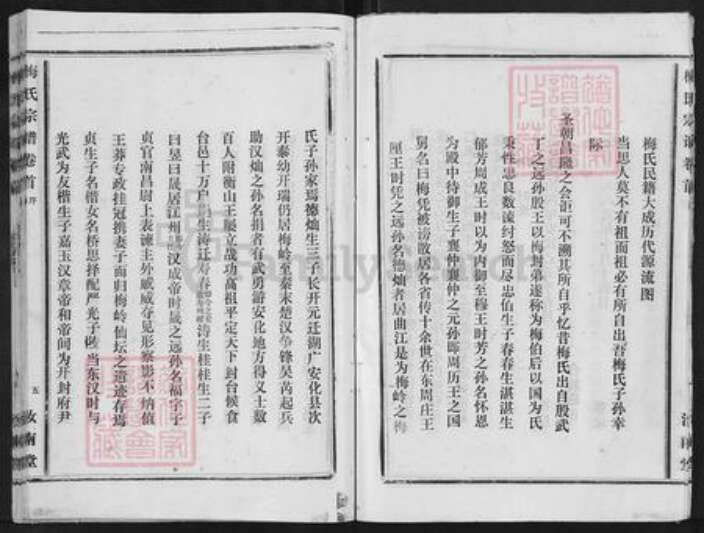 梅氏民籍大成历代源流图
当思人莫不有祖而祖必有所自出吾梅氏子孙幸
际
圣朝昌隆之会讵可不溯其所自乎忆昔梅氏出自殷武
丁之远孙殷王以梅封弟遂称为梅伯后以国为氏
秉性忠良数谏纣怒而尽忠伯生子春春生湛湛生
郁芳周成王时以为内御至穆王时芳之孙名怀恩
为殿中待御生子襄仲襄仲之元孙即周历王之国
舅名曰梅凭被谤散居各省传十余世在东周庄王
厘王时凭之远孙名德灿者居曲江是为梅岭之梅
氏子孙家焉德灿生三子长开元迁湖广安化县次
开泰幼开瑞仍居梅岭至秦末楚汉争锋吴芮起兵
助汉灿之孙名鋗者有武勇游安化地方得义士数
百人附衡山王屡立战功高祖平定天下封台候食
台邑十万户 生涛迁寿春 涛生桂桂生二子
曰昱曰晟居江州 汉成帝时晟之远孙名福字子
贞官南昌尉上表谏主外戚威夺见形察影不纳值
王莽专政挂冠携妻子而归梅岭仙坛之遗迹存焉
贞生子名楷女名桥思择配严光子陵当东汉时与
光武为友楷生子嘉玉汉章帝和帝间为开封府尹
梅氏宗谱卷首
序
五
汝南堂
FamilySearch